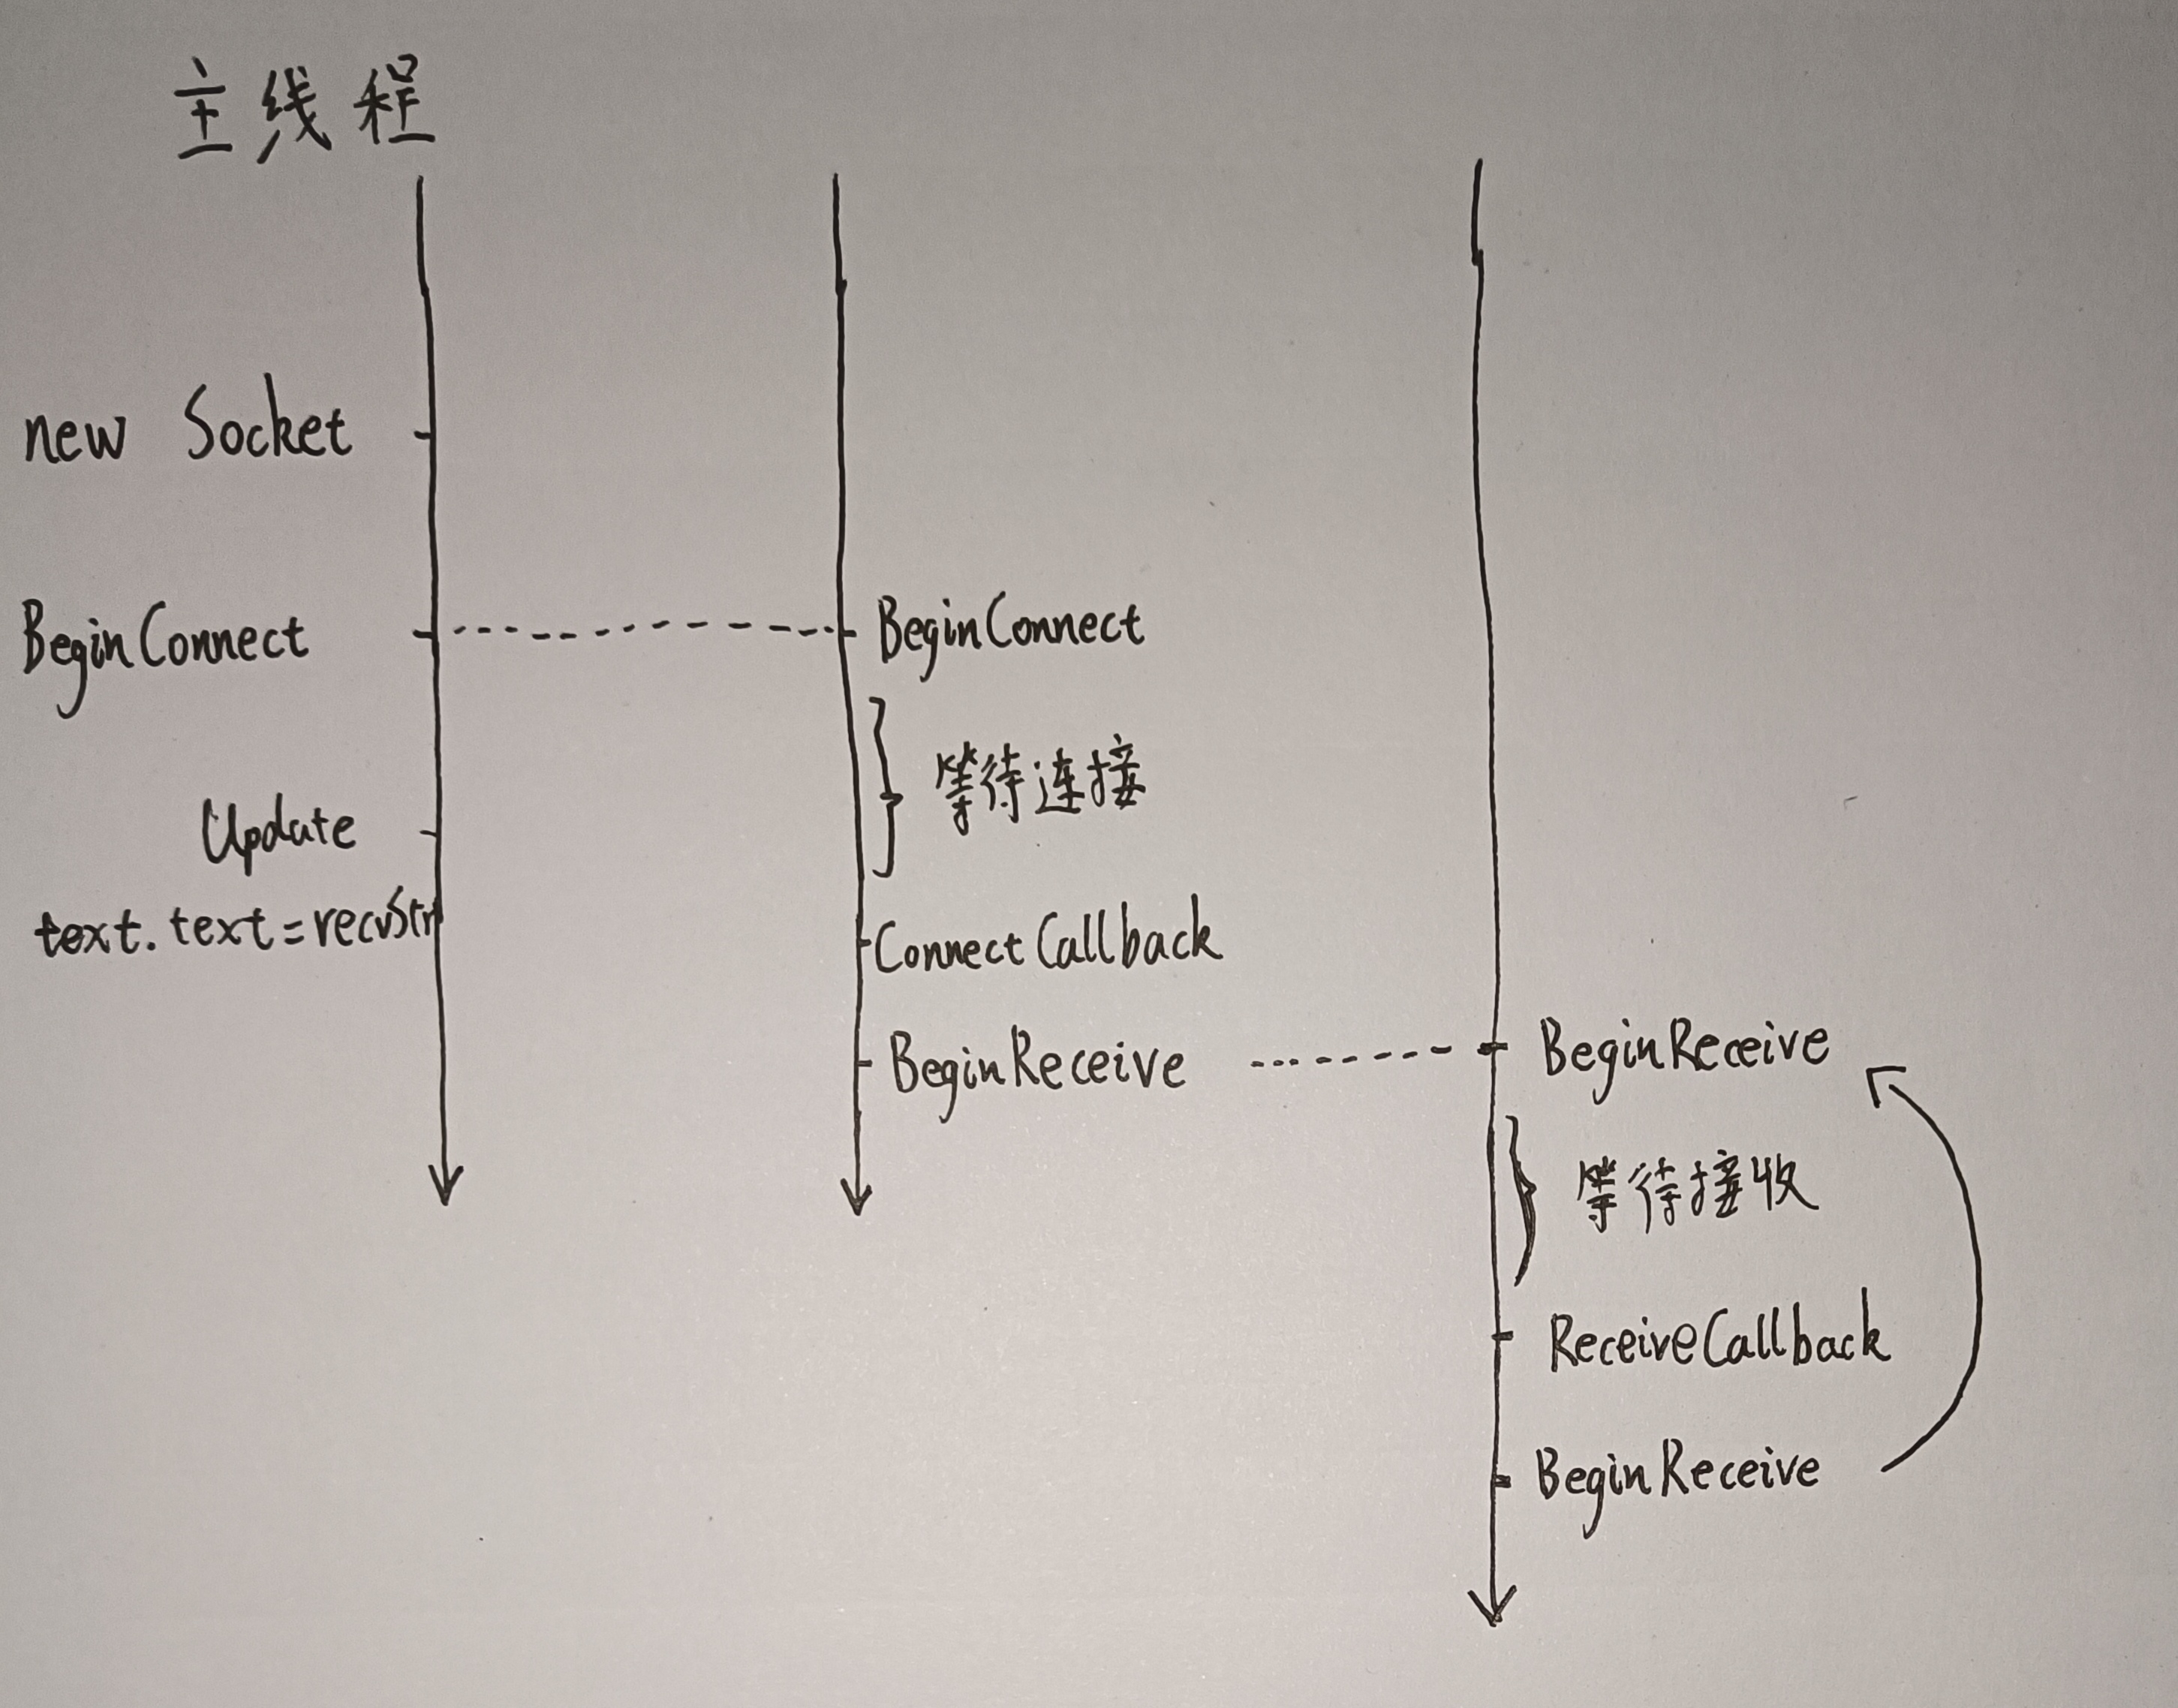 主线程
new Socket
BeginConnect
Update
text.text=recvStr
BeginConnect
等待连接
ConnectCallback
BeginReceive
BeginReceive
等待接收
ReceiveCallback
BeginReceive